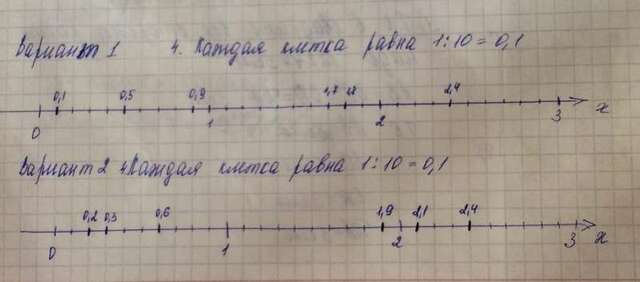 Вариант 1 4. Каждая клетка равна 1:10=0,1
0,1 0,5 0,9 1,7 1,8 2,4
0 1 2 3 x
Вариант 2 4. Каждая клетка равна 1:10=0,1
0,2 0,3 0,6 1,9 2,1 2,4
0 1 2 3 x